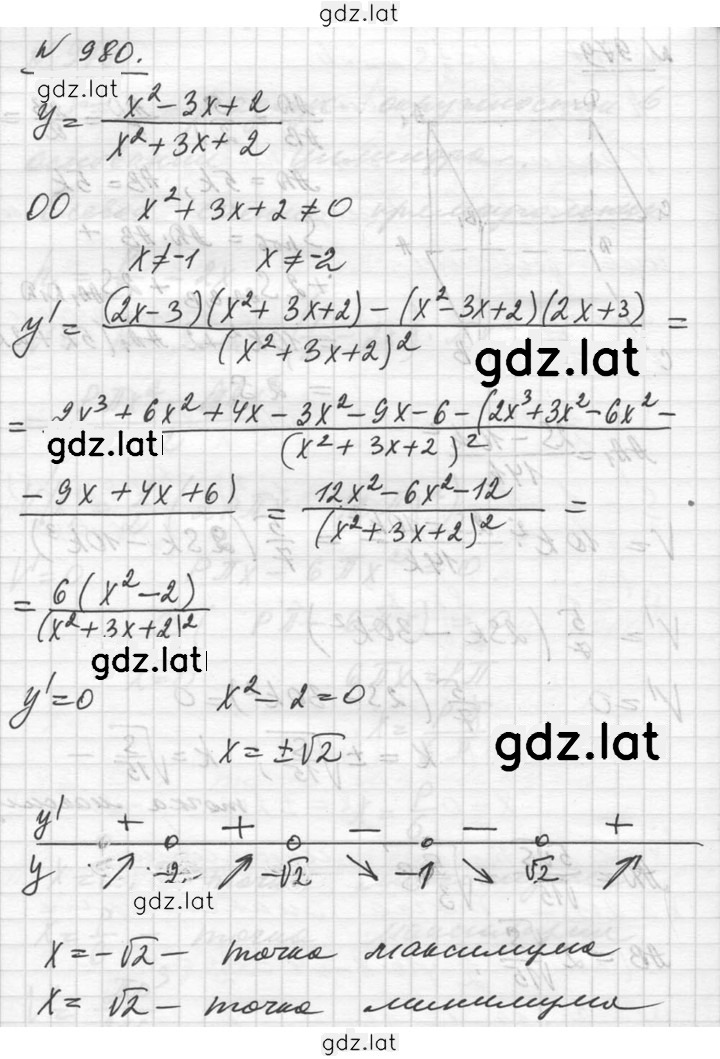 gdz.lat
N 980.
gdz.lat
y = (x² - 3x + 2)/(x² + 3x + 2)
OO x² + 3x + 2 ≠ 0
x ≠ -1 x ≠ -2
y' = ((2x - 3)(x² + 3x + 2) - (x² - 3x + 2)(2x + 3))/(x² + 3x + 2)² =
gdz.lat
= (2x³ + 6x² + 4x - 3x² - 9x - 6 - (2x³ + 3x² - 6x² -
gdz.lat
(x² + 3x + 2)²
- 9x + 4x + 6) = (12x² - 6x² - 12)/(x² + 3x + 2)² =
= 6(x² - 2)/(x² + 3x + 2)²
gdz.lat
y' = 0 x² - 2 = 0
x = ±√2
gdz.lat
y' + + - - +
y ↗ -2 ↗ -√2 ↘ -1 ↘ √2 ↗
gdz.lat
x = -√2 - точка максимума
x = √2 - точка минимума
gdz.lat